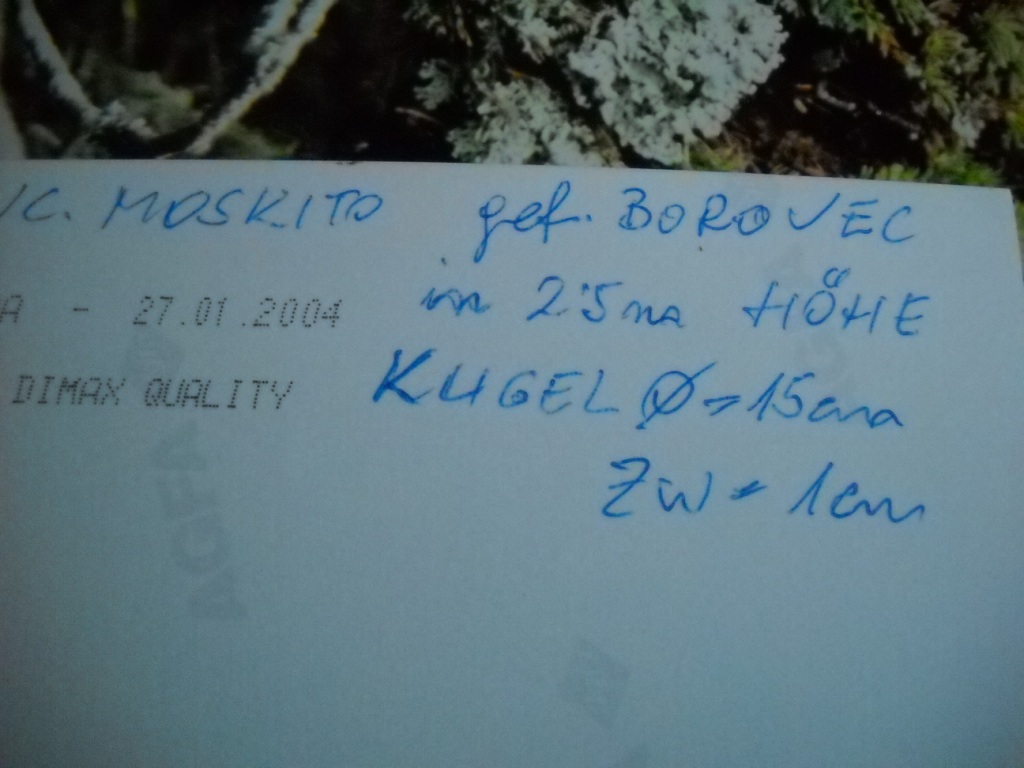 /C. MOSKITO gef. BOROVEC
in 2.5m HÖHE
A - 27.01.2004
KUGEL Ø = 15cm
DIMAX QUALITY
ZW = 1cm
AGFA